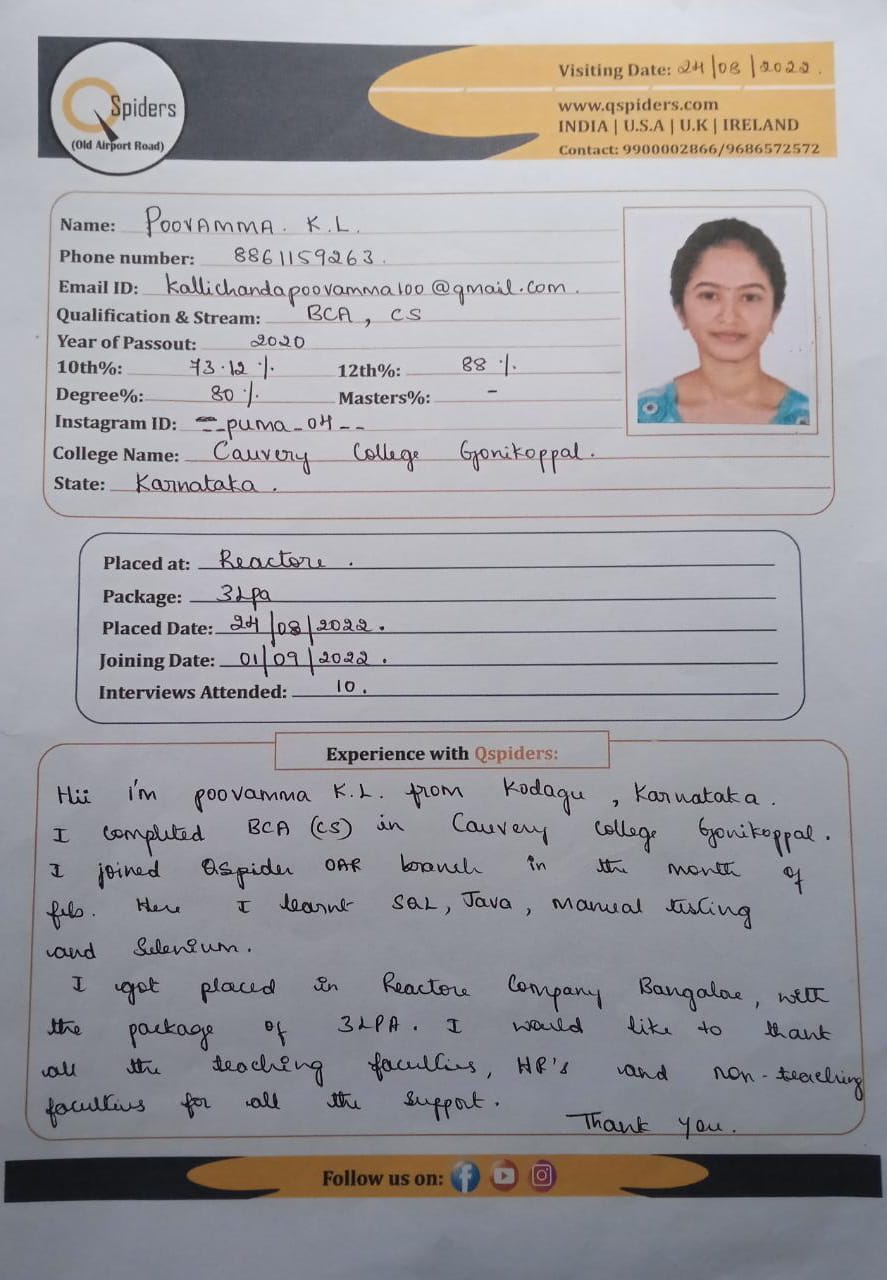 QSpiders
(Old Airport Road)
Visiting Date: 24/08/2022.
www.qspiders.com
INDIA | U.S.A | U.K | IRELAND
Contact: 9900002866/9686572572
Name: POOVAMMA. K.L.
Phone number: 8861159263.
Email ID: kallichandapoovamma100@gmail.com.
Qualification & Stream: BCA, CS
Year of Passout: 2020
10th%: 73.12 % 12th%: 88 %
Degree%: 80 % Masters%: -
Instagram ID: _-puma-04--
College Name: Cauvery College Gonikoppal.
State: Karnataka.
Placed at: Reactore.
Package: 3Lpa
Placed Date: 24/08/2022.
Joining Date: 01/09/2022.
Interviews Attended: 10.
Experience with Qspiders:
Hii i'm poovamma K.L. from Kodagu, Karnataka.
I completed BCA (CS) in Cauvery College Gonikoppal.
I joined Qspider OAR branch in the month of
feb. Here I learnt SQL, Java, Manual testing
and Selenium.
I got placed in Reactore Company Bangalore, with
the package of 3LPA. I would like to thank
all the teaching faculties, HR's and non-teaching
faculties for all the support.
Thank you.
Follow us on: